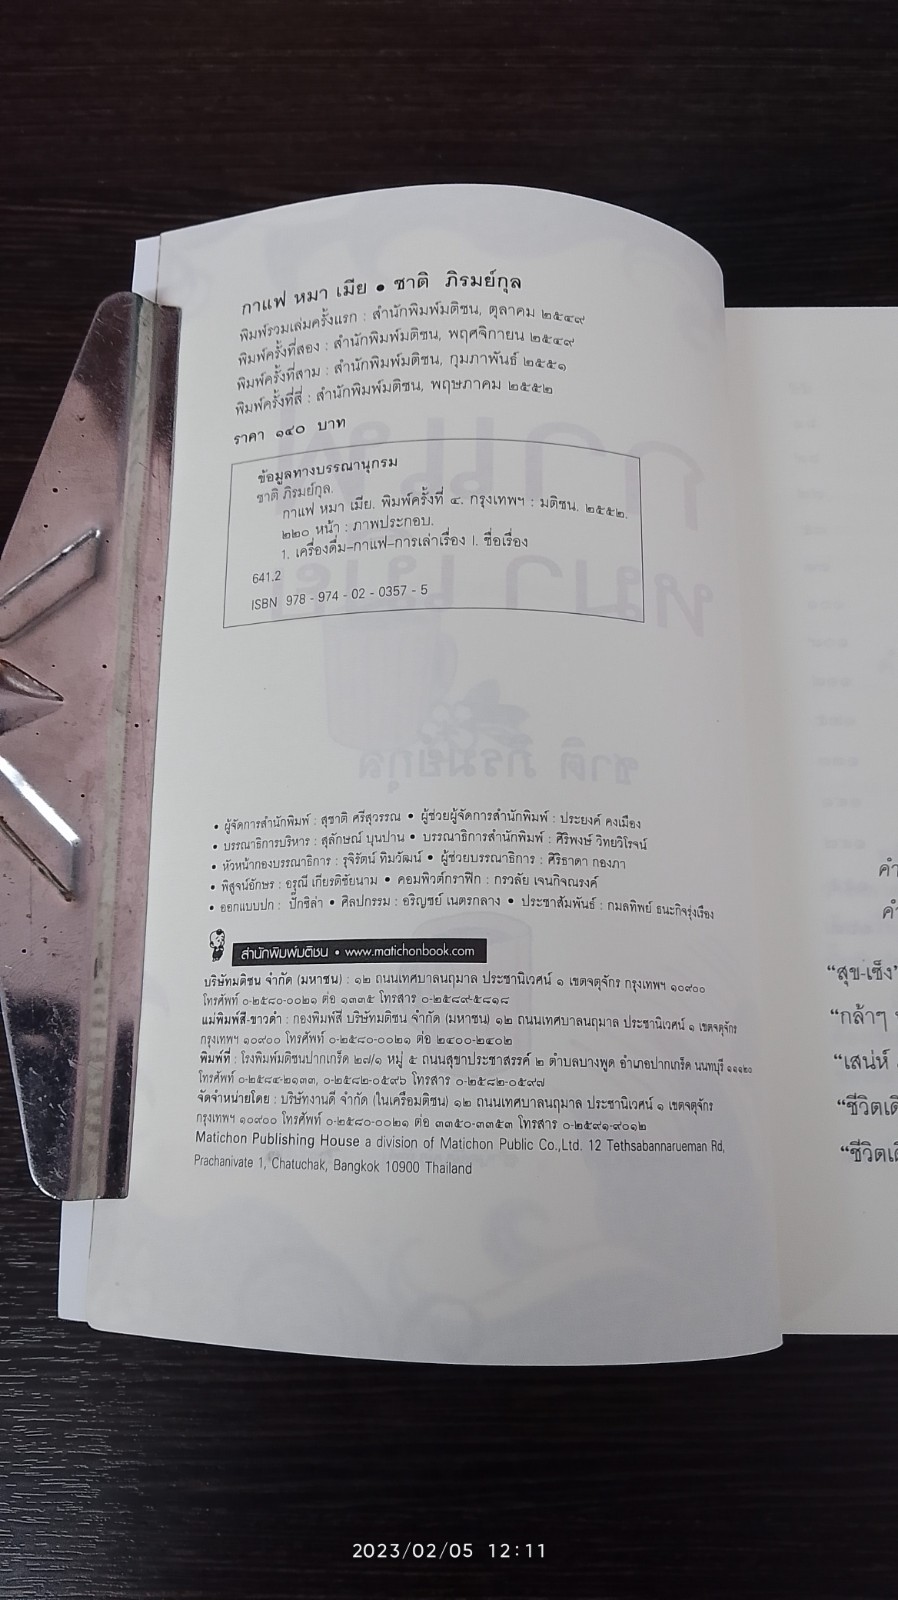 กาแฟ หมา เมีย • ชาติ ภิรมย์กุล
พิมพ์รวมเล่มครั้งแรก : สำนักพิมพ์มติชน, ตุลาคม ๒๕๔๙
พิมพ์ครั้งที่สอง : สำนักพิมพ์มติชน, พฤศจิกายน ๒๕๔๙
พิมพ์ครั้งที่สาม : สำนักพิมพ์มติชน, กุมภาพันธ์ ๒๕๕๑
พิมพ์ครั้งที่สี่ : สำนักพิมพ์มติชน, พฤษภาคม ๒๕๕๒
ราคา ๑๔๐ บาท
ข้อมูลทางบรรณานุกรม
ชาติ ภิรมย์กุล.
กาแฟ หมา เมีย. พิมพ์ครั้งที่ ๔. กรุงเทพฯ : มติชน, ๒๕๕๒.
๒๒๐ หน้า : ภาพประกอบ.
1. เครื่องดื่ม–กาแฟ–การเล่าเรื่อง I. ชื่อเรื่อง
641.2
ISBN 978 - 974 - 02 - 0357 - 5
• ผู้จัดการสำนักพิมพ์ : สุชาติ ศรีสุวรรณ • ผู้ช่วยผู้จัดการสำนักพิมพ์ : ประยงค์ คงเมือง
• บรรณาธิการบริหาร : สุลักษณ์ บุนปาน • บรรณาธิการสำนักพิมพ์ : ศิริพงษ์ วิทยวิโรจน์
• หัวหน้ากองบรรณาธิการ : รุจิรัตน์ ทิมวัฒน์ • ผู้ช่วยบรรณาธิการ : ศิริธาดา กองภา
• พิสูจน์อักษร : อรุณี เกียรติชัยนาม • คอมพิวต์กราฟิก : กรวลัย เจนกิจณรงค์
• ออกแบบปก : ปั๊กชิล่า • ศิลปกรรม : อริญชย์ เนตรกลาง • ประชาสัมพันธ์ : กมลทิพย์ ธนะกิจรุ่งเรือง
สำนักพิมพ์มติชน • www.matichonbook.com
บริษัทมติชน จำกัด (มหาชน) : ๑๒ ถนนเทศบาลนฤมาล ประชานิเวศน์ ๑ เขตจตุจักร กรุงเทพฯ ๑๐๙๐๐
โทรศัพท์ ๐-๒๕๘๐-๐๐๒๑ ต่อ ๑๓๓๕ โทรสาร ๐-๒๕๘๙-๕๘๑๘
แม่พิมพ์สี-ขาวดำ : กองพิมพ์สี บริษัทมติชน จำกัด (มหาชน) ๑๒ ถนนเทศบาลนฤมาล ประชานิเวศน์ ๑ เขตจตุจักร
กรุงเทพฯ ๑๐๙๐๐ โทรศัพท์ ๐-๒๕๘๐-๐๐๒๑ ต่อ ๒๔๐๐-๒๔๐๒
พิมพ์ที่ : โรงพิมพ์มติชนปากเกร็ด ๒๗/๑ หมู่ ๕ ถนนสุขาประชาสรรค์ ๒ ตำบลบางพูด อำเภอปากเกร็ด นนทบุรี ๑๑๑๒๐
โทรศัพท์ ๐-๒๕๘๔-๒๑๓๓, ๐-๒๕๘๒-๐๕๙๖ โทรสาร ๐-๒๕๘๒-๐๕๙๗
จัดจำหน่ายโดย : บริษัทงานดี จำกัด (ในเครือมติชน) ๑๒ ถนนเทศบาลนฤมาล ประชานิเวศน์ ๑ เขตจตุจักร
กรุงเทพฯ ๑๐๙๐๐ โทรศัพท์ ๐-๒๕๘๐-๐๐๒๑ ต่อ ๓๓๕๐-๓๓๕๓ โทรสาร ๐-๒๕๙๑-๙๐๑๒
Matichon Publishing House a division of Matichon Public Co.,Ltd. 12 Tethsabannarueman Rd,
Prachanivate 1, Chatuchak, Bangkok 10900 Thailand
“สุข-เซ็ง”
“กล้าๆ
“เสน่ห์
2023/02/05 12:11